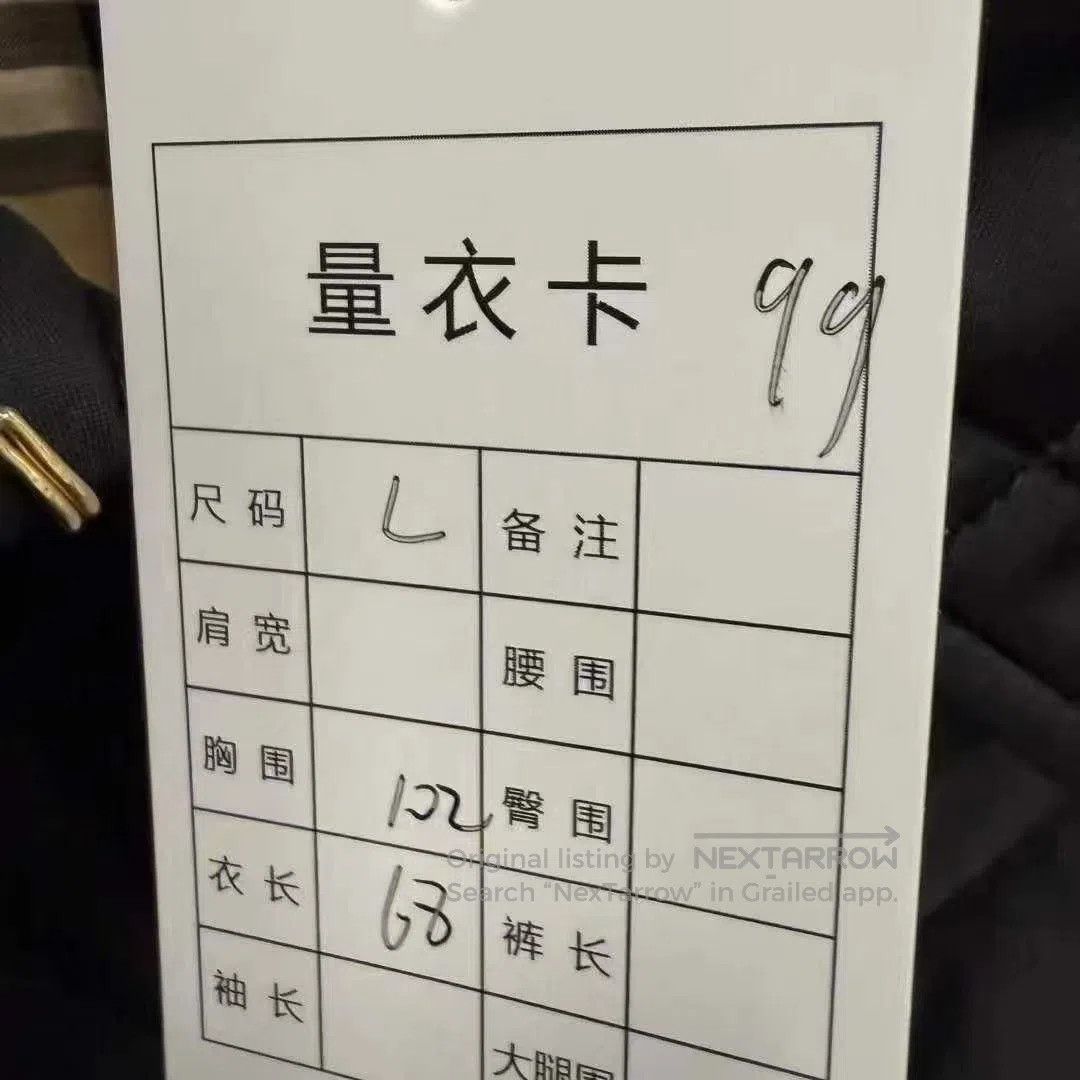 量衣卡 99
尺码 L 备注
肩宽 腰围
胸围 102 臀围
衣长 68 裤长
袖长 大腿围
Original listing by NEXTARROW
Search "NexTarrow" in Grailed app.